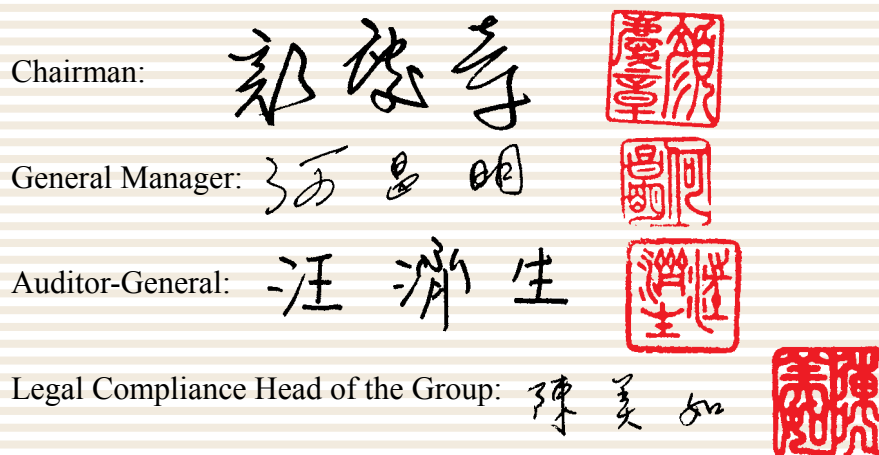 Chairman: 顏慶章 顏慶章
General Manager: 何昌明
Auditor-General: 汪濟生 汪濟生
Legal Compliance Head of the Group: 陳美如 陳美如